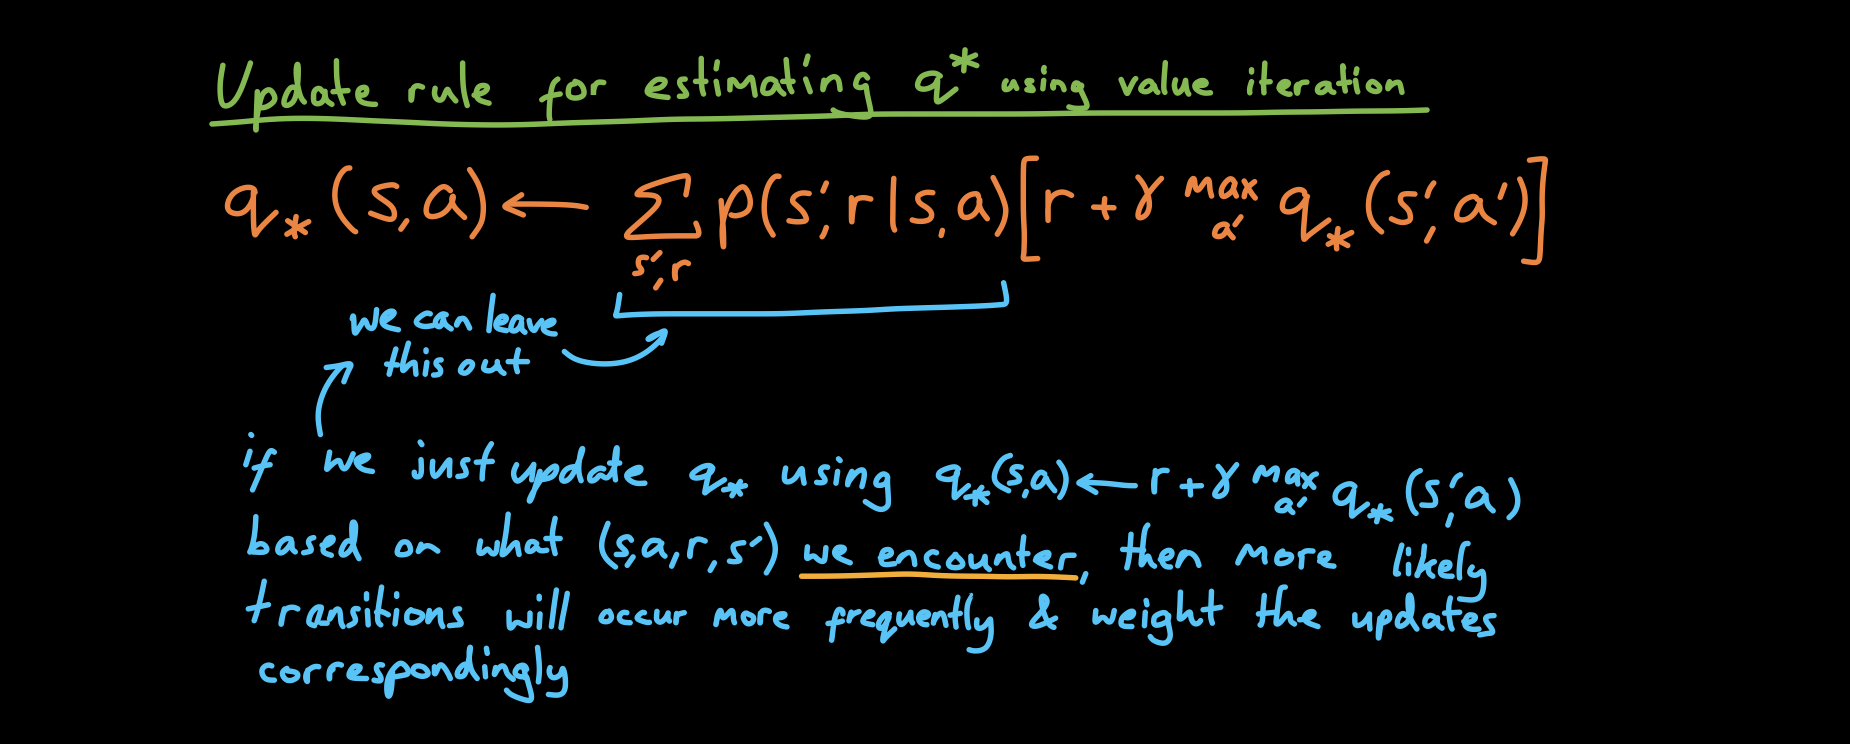 Update rule for estimating q* using value iteration
q_*(s,a) ← Σ_{s',r} p(s',r|s,a)[r + γ max_{a'} q_*(s',a')]
we can leave
this out
if we just update q_* using q_*(s,a) ← r + γ max_{a'} q_*(s',a)
based on what (s,a,r,s') we encounter, then more likely
transitions will occur more frequently & weight the updates
correspondingly